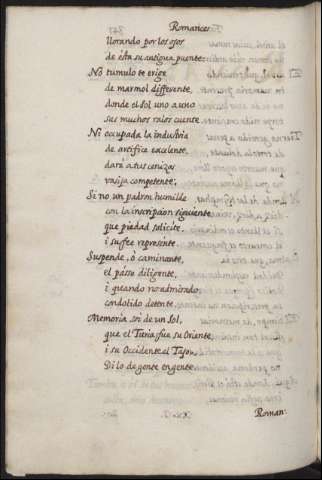 Romances
llorando por los ojos
de ésta su antigua puente:
No tumulo te erige
de marmol differente,
donde el Sol uno a uno
sus muchos raios cuente
Ni occupada la industria
de artifice excelente
dará a tus cenizas
vasija competente;
Si no un padron humilde
con la inscripcion siguiente
que piedad solicite
i su fee represente.
Suspende, ò caminante,
el passo diligente,
i quando no admirado
condolido detente.
Memoria soi de un Sol,
que el Turia fue su Oriente
i su Occidente el Tajo.
Dilo de gente en gente.
Roman-